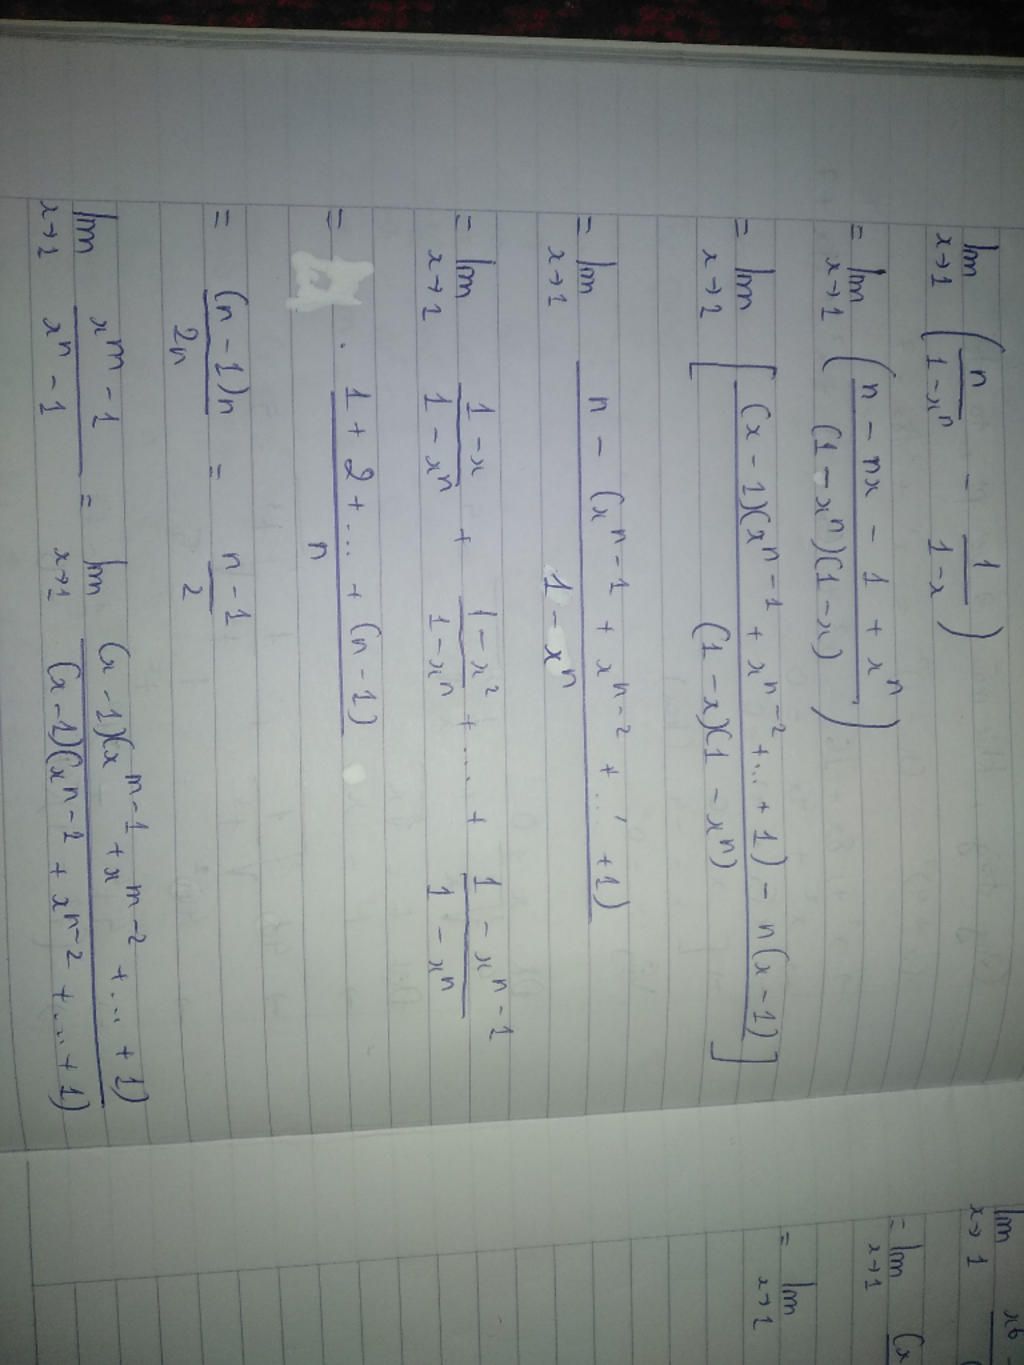 lim x→1 ( n/(1-x^n) - 1/(1-x) )
= lim x→1 ( (n - nx - 1 + x^n)/((1-x^n)(1-x)) )
= lim x→1 [ ((x-1)(x^{n-1} + x^{n-2} + ... + 1) - n(x-1))/((1-x)(1-x^n)) ]
= lim x→1 (n - (x^{n-1} + x^{n-2} + ... + 1))/(1-x^n)
= lim x→1 (1-x)/(1-x^n) + (1-x^2)/(1-x^n) + .... + (1-x^{n-1})/(1-x^n)
= . (1 + 2 + ... + (n-1))/n
= (n-1)n/2n = (n-1)/2
lim x→1 (x^m - 1)/(x^n - 1) = lim x→1 ((x-1)(x^{m-1} + x^{m-2} + ... + 1))/((x-1)(x^{n-1} + x^{n-2} + ... + 1))
lim x→1
= lim x→1 (x
= lim x→1